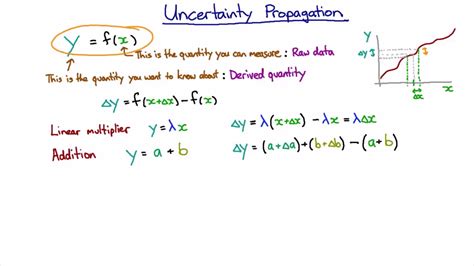 Uncertainty Propagation
y = f(x)
This is the quantity you can measure : Raw data
This is the quantity you want to know about : Derived quantity
Δy = f(x+Δx) - f(x)
Linear multiplier y = λx Δy = λ(x+Δx) - λx = λΔx
Addition y = a + b Δy = (a+Δa)+(b+Δb) - (a+b)
Y
Δy
x
Δx